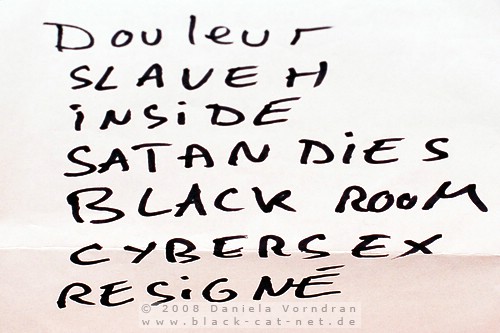 Douleur
SLAVE H
iNSiDE
SATAN DiES
BLACK ROOM
CYBERSEX
RESiGNÉ
© 2008 Daniela Vorndran
www.black-cat-net.de